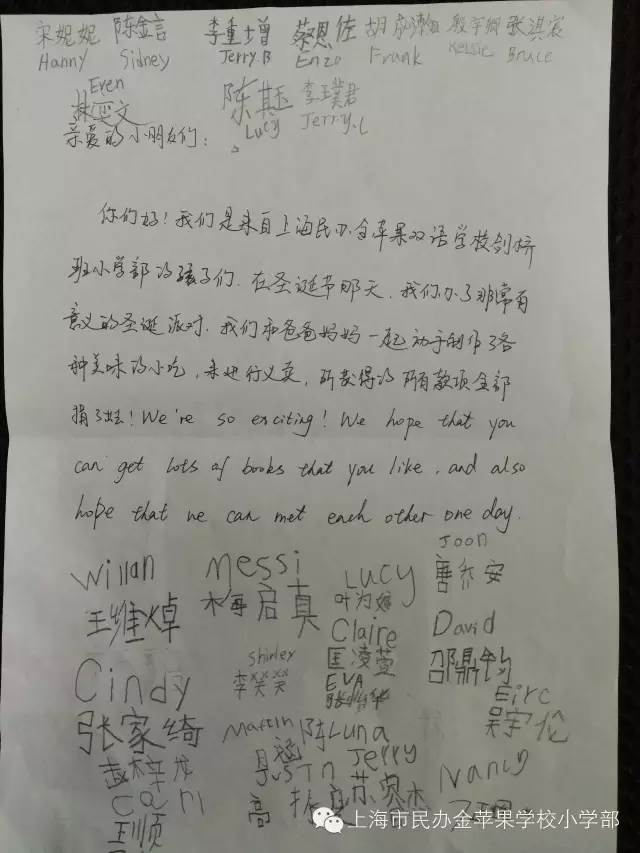 宋妮妮 陈金言 李重增 蔡恩佐 胡 张淇宸
Hanny Sidney Jerry.B Enzo Frank Kelsie Bruce
Even
林 文 陈其玉 李璞君
Lucy Jerry.L
亲爱的小朋友们:
你们好!我们是来自上海民办金苹果双语学校剑桥
班小学部的孩子们.在圣诞节那天,我们办了非常有
意义的圣诞派对.我们和爸爸妈妈一起动手制作了各
种美味的小吃,来进行义卖,所获得的所有款项全部
捐了出去!We're so exciting! We hope that you
can get lots of books that you like, and also
hope that we can met each other one day.
Joon
Willan Messi Lucy 唐乔安
王维焯 梅启真 叶为嬉
Claire David
Shirley 匡凌萱 邵鼎钧
Cindy 李笑笑 EVA
Eirc
张家绮 Martin 陈Luna 吴宇伦
涵 Jerry
赵梓龙 Justn Nancy
Carl 高振庭 苏奕杰
王顺
上海市民办金苹果学校小学部